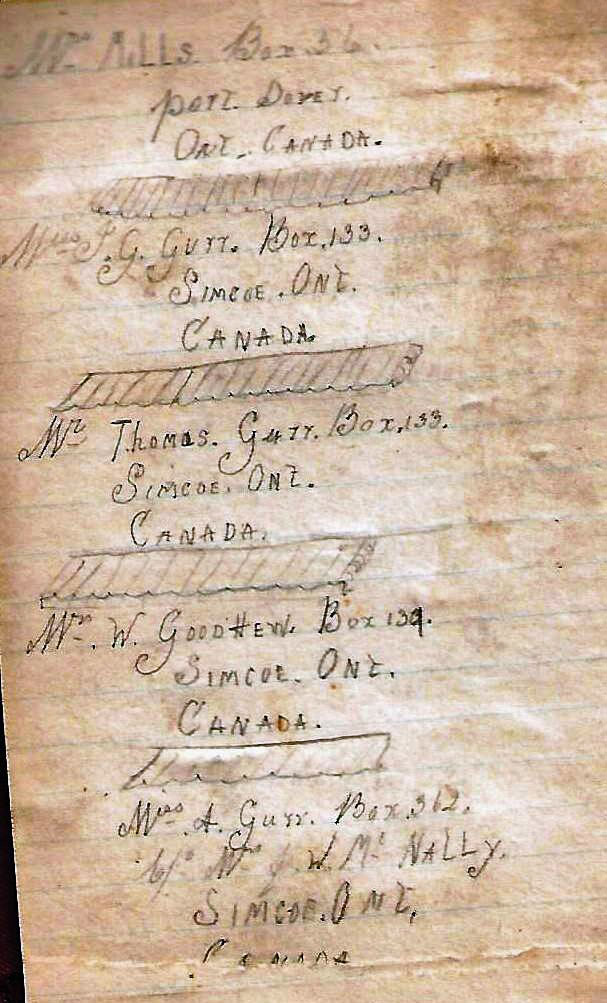 Mrs Mills. Box 36.
Port. Dover.
Ont. Canada.
Miss J.G. Gurr. Box.133.
Simcoe. Ont.
Canada.
Mr Thomas. Gurr. Box.133.
Simcoe. Ont.
Canada.
W. Goodhew. Box 134.
Simcoe. Ont.
Canada.
Miss. A. Gurr. Box.362.
c/o Mrs J. W. Mc Nally.
Simcoe. Ont.
Canada